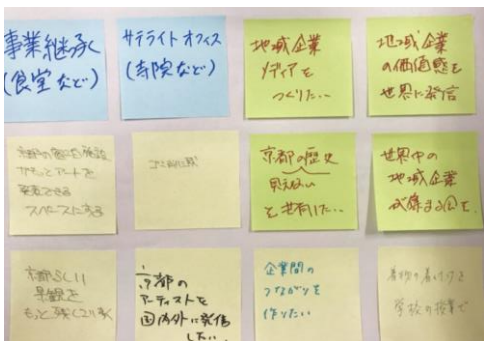 事業継承
(食堂など)
サテライトオフィス
(寺院など)
地域企業
メディアを
つくりたい
地域企業
の価値感を
世界に発信
アートを
スペースにする
京都の歴史
見えない
と共有したい
世界中の
地域企業
が集まる
京都らしい
景観を
もっと残していく
京都の
アーティストを
国内外に発信
したい
企業間の
つながりを
作りたい
学校の授業で